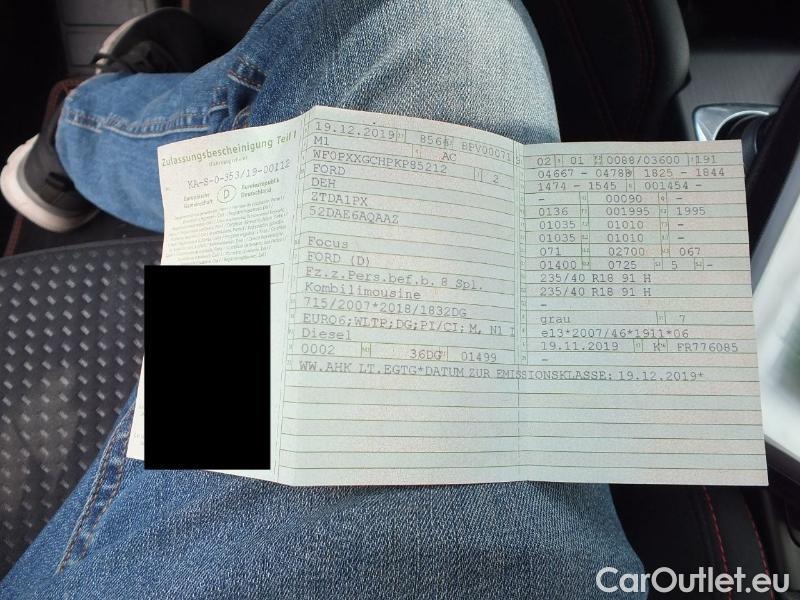 Zulassungsbescheinigung Teil I
(Fahrzeugschein)
KA-S-0-353/19-00112
Europäische
Gemeinschaft
D
Bundesrepublik
Deutschland
19.12.2019 8566 BPV00071
M1 AC
WF0PXXGCHPKP85212 2
FORD
DEH
ZTDA1PX
52DAE6AQAAZ
Focus
FORD (D)
Fz.z.Pers.bef.b. 8 Spl.
Kombilimousine
715/2007*2018/1832DG
EURO6;WLTP;DG;PI/CI; M, N1 I
Diesel
0002 36DG 01499
WW.AHK LT.EGTG*DATUM ZUR EMISSIONSKLASSE: 19.12.2019*
02 01 0088/03600 191
04667 - 04788 1825 - 1844
1474 - 1545 001454 -
- 00090 -
0136 001995 1995
01035 01010 -
01035 01010 -
071 02700 067
01400 0725 5 -
235/40 R18 91 H
235/40 R18 91 H
-
grau 7
e13*2007/46*1911*06
19.11.2019 K FR776085
-
CarOutlet.eu